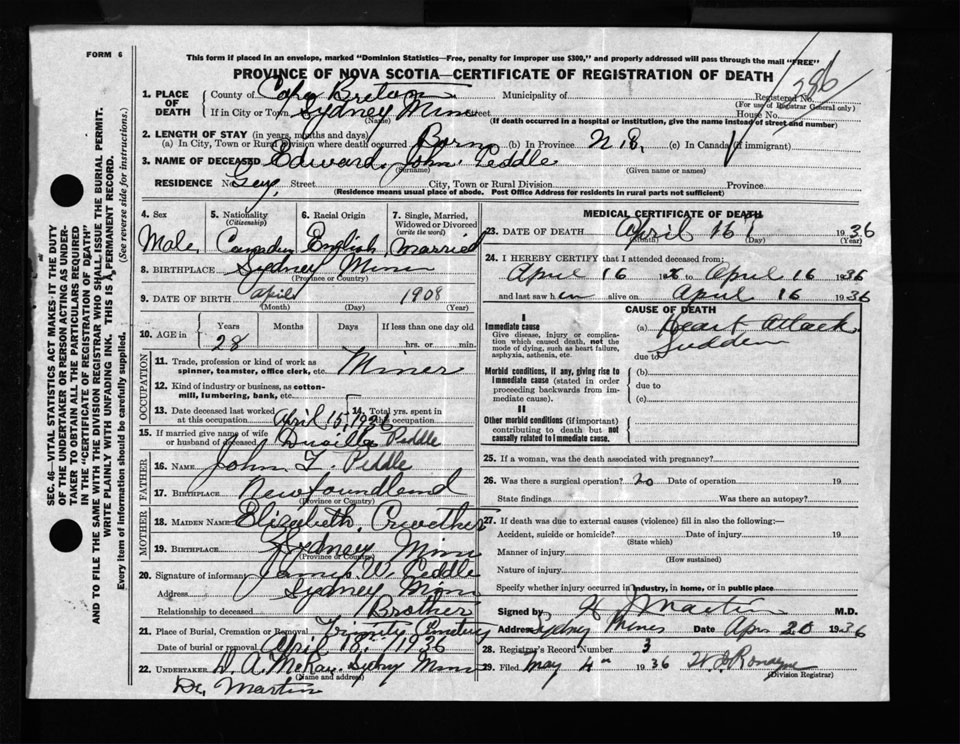 FORM 6
This form if placed in an envelope, marked "Dominion Statistics—Free, penalty for improper use $300," and properly addressed will pass through the mail "FREE"
PROVINCE OF NOVA SCOTIA—CERTIFICATE OF REGISTRATION OF DEATH
286
SEC. 46—VITAL STATISTICS ACT MAKES IT THE DUTY
OF THE UNDERTAKER OR PERSON ACTING AS UNDER-
TAKER TO OBTAIN ALL THE PARTICULARS REQUIRED
IN THE "CERTIFICATE OF REGISTRATION OF DEATH"
AND TO FILE THE SAME WITH THE DIVISION REGISTRAR WHO SHALL ISSUE THE BURIAL PERMIT.
WRITE PLAINLY WITH UNFADING INK. THIS IS A PERMANENT RECORD.
Every item of information should be carefully supplied. (See reverse side for instructions.)
1. PLACE OF DEATH County of Cape Breton Municipality of Registered No.
(For use of Registrar General only)
If in City or Town Sydney Mines Street House No.
(Name) (If death occurred in a hospital or institution, give the name instead of street and number)
2. LENGTH OF STAY (in years, months and days)
(a) In City, Town or Rural Division where death occurred Born (b) In Province N.B. (c) In Canada (if immigrant)
3. NAME OF DECEASED Edward John Peddle
(Surname) (Given name or names)
RESIDENCE No. Street City, Town or Rural Division Province
(Residence means usual place of abode. Post Office Address for residents in rural parts not sufficient)
4. Sex 5. Nationality (Citizenship) 6. Racial Origin 7. Single, Married, Widowed or Divorced (write the word)
Male Canadian English Married
8. BIRTHPLACE Sydney Mines
(Province or Country)
9. DATE OF BIRTH April 1908
(Month) (Day) (Year)
10. AGE in Years Months Days If less than one day old
28 hrs. or min.
OCCUPATION
11. Trade, profession or kind of work as spinner, teamster, office clerk, etc. Miner
12. Kind of industry or business, as cotton-mill, lumbering, bank, etc.
13. Date deceased last worked at this occupation April 15, 1936 14. Total yrs. spent in this occupation
15. If married give name of wife or husband of deceased Peddle
FATHER
16. NAME John T. Peddle
17. BIRTHPLACE Newfoundland
(Province or Country)
MOTHER
18. MAIDEN NAME Elizabeth Crwether
19. BIRTHPLACE Sydney Mines
(Province or Country)
20. Signature of informant James W. Peddle
Address Sydney Mines
Relationship to deceased Brother
21. Place of Burial, Cremation or Removal Trinity Cemetery
Date of burial or removal April 1936
22. UNDERTAKER D. A. McKay Sydney Mines
(Name and address)
Dr. Martin
MEDICAL CERTIFICATE OF DEATH
23. DATE OF DEATH April 16 1936
(Month) (Day) (Year)
24. I HEREBY CERTIFY that I attended deceased from:
April 16 to April 16 1936
and last saw him alive on April 16 1936
CAUSE OF DEATH
I
Immediate cause (a) Heart Attack
Give disease, injury or complication which caused death, not the mode of dying, such as heart failure, asphyxia, asthenia, etc. Sudden
due to
Morbid conditions, if any, giving rise to immediate cause (stated in order proceeding backwards from immediate cause). (b)
due to
(c)
II
Other morbid conditions (if important) contributing to death but not causally related to immediate cause.
25. If a woman, was the death associated with pregnancy?
26. Was there a surgical operation? no Date of operation 19
State findings Was there an autopsy?
27. If death was due to external causes (violence) fill in also the following:—
Accident, suicide or homicide? Date of injury 19
(State which)
Manner of injury
(How sustained)
Nature of injury
Specify whether injury occurred in industry, in home, or in public place
Signed by Martin M.D.
Address Sydney Mines Date Apr 20 1936
28. Registrar's Record Number 3
29. Filed May 4 1936
(Division Registrar)